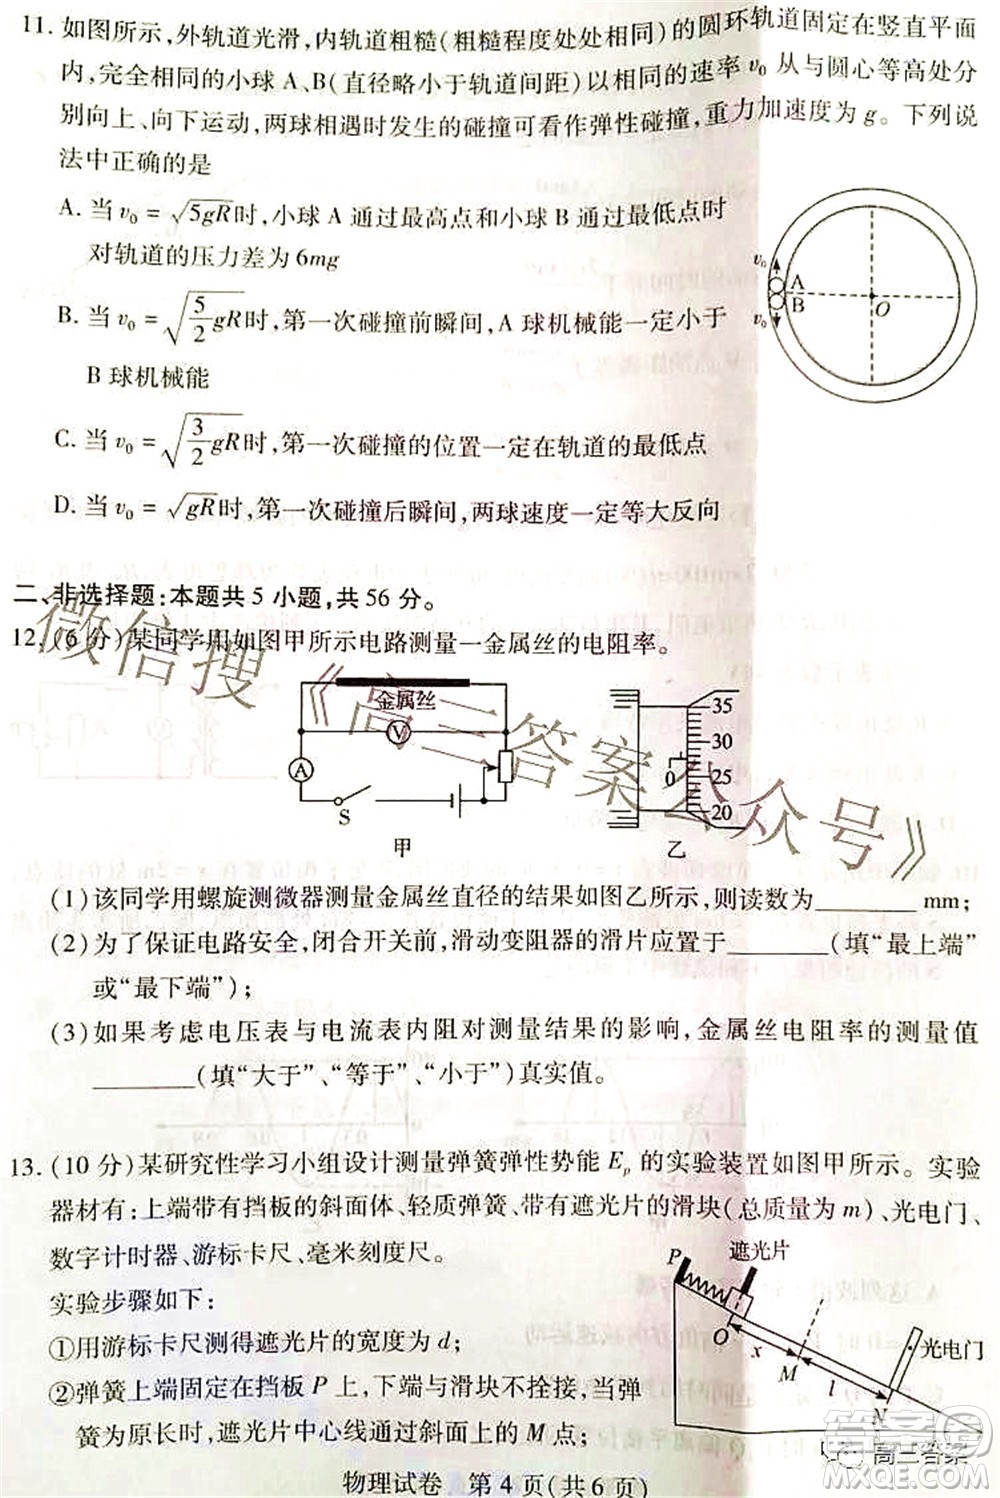 11. 如图所示,外轨道光滑,内轨道粗糙(粗糙程度处处相同)的圆环轨道固定在竖直平面
内,完全相同的小球 A、B(直径略小于轨道间距)以相同的速率 v₀ 从与圆心等高处分
别向上、向下运动,两球相遇时发生的碰撞可看作弹性碰撞,重力加速度为 g。下列说
法中正确的是
A. 当 v₀ = √5gR时,小球 A 通过最高点和小球 B 通过最低点时
对轨道的压力差为 6mg
B. 当 v₀ = √(5/2 gR)时,第一次碰撞前瞬间,A 球机械能一定小于
B 球机械能
C. 当 v₀ = √(3/2 gR)时,第一次碰撞的位置一定在轨道的最低点
D. 当 v₀ = √gR时,第一次碰撞后瞬间,两球速度一定等大反向
v₀
A
B
v₀
O
二、非选择题:本题共 5 小题,共 56 分。
12. (6 分)某同学用如图甲所示电路测量一金属丝的电阻率。
金属丝
V
A
S
甲
35
30
25
20
0
乙
(1)该同学用螺旋测微器测量金属丝直径的结果如图乙所示,则读数为________ mm;
(2)为了保证电路安全,闭合开关前,滑动变阻器的滑片应置于________(填“最上端”
或“最下端”);
(3)如果考虑电压表与电流表内阻对测量结果的影响,金属丝电阻率的测量值
________(填“大于”、“等于”、“小于”)真实值。
13. (10 分)某研究性学习小组设计测量弹簧弹性势能 Eₚ 的实验装置如图甲所示。实验
器材有:上端带有挡板的斜面体、轻质弹簧、带有遮光片的滑块(总质量为 m)、光电门、
数字计时器、游标卡尺、毫米刻度尺。
实验步骤如下:
①用游标卡尺测得遮光片的宽度为 d;
②弹簧上端固定在挡板 P 上,下端与滑块不拴接,当弹
簧为原长时,遮光片中心线通过斜面上的 M 点;
P
遮光片
O
x
M
l
N
光电门
物理试卷 第 4 页(共 6 页)
微信搜《高三答案公众号》
高三答案
答案圈
MXQE.COM